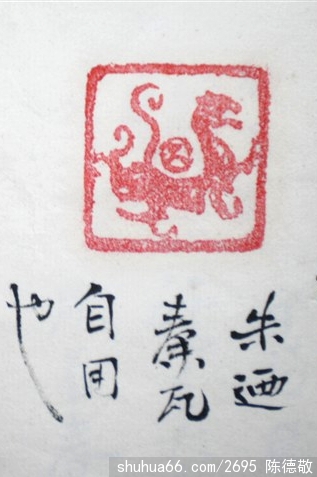 朱迺
秦瓦
自用
也
shuhua66.com/2695 陈德敬